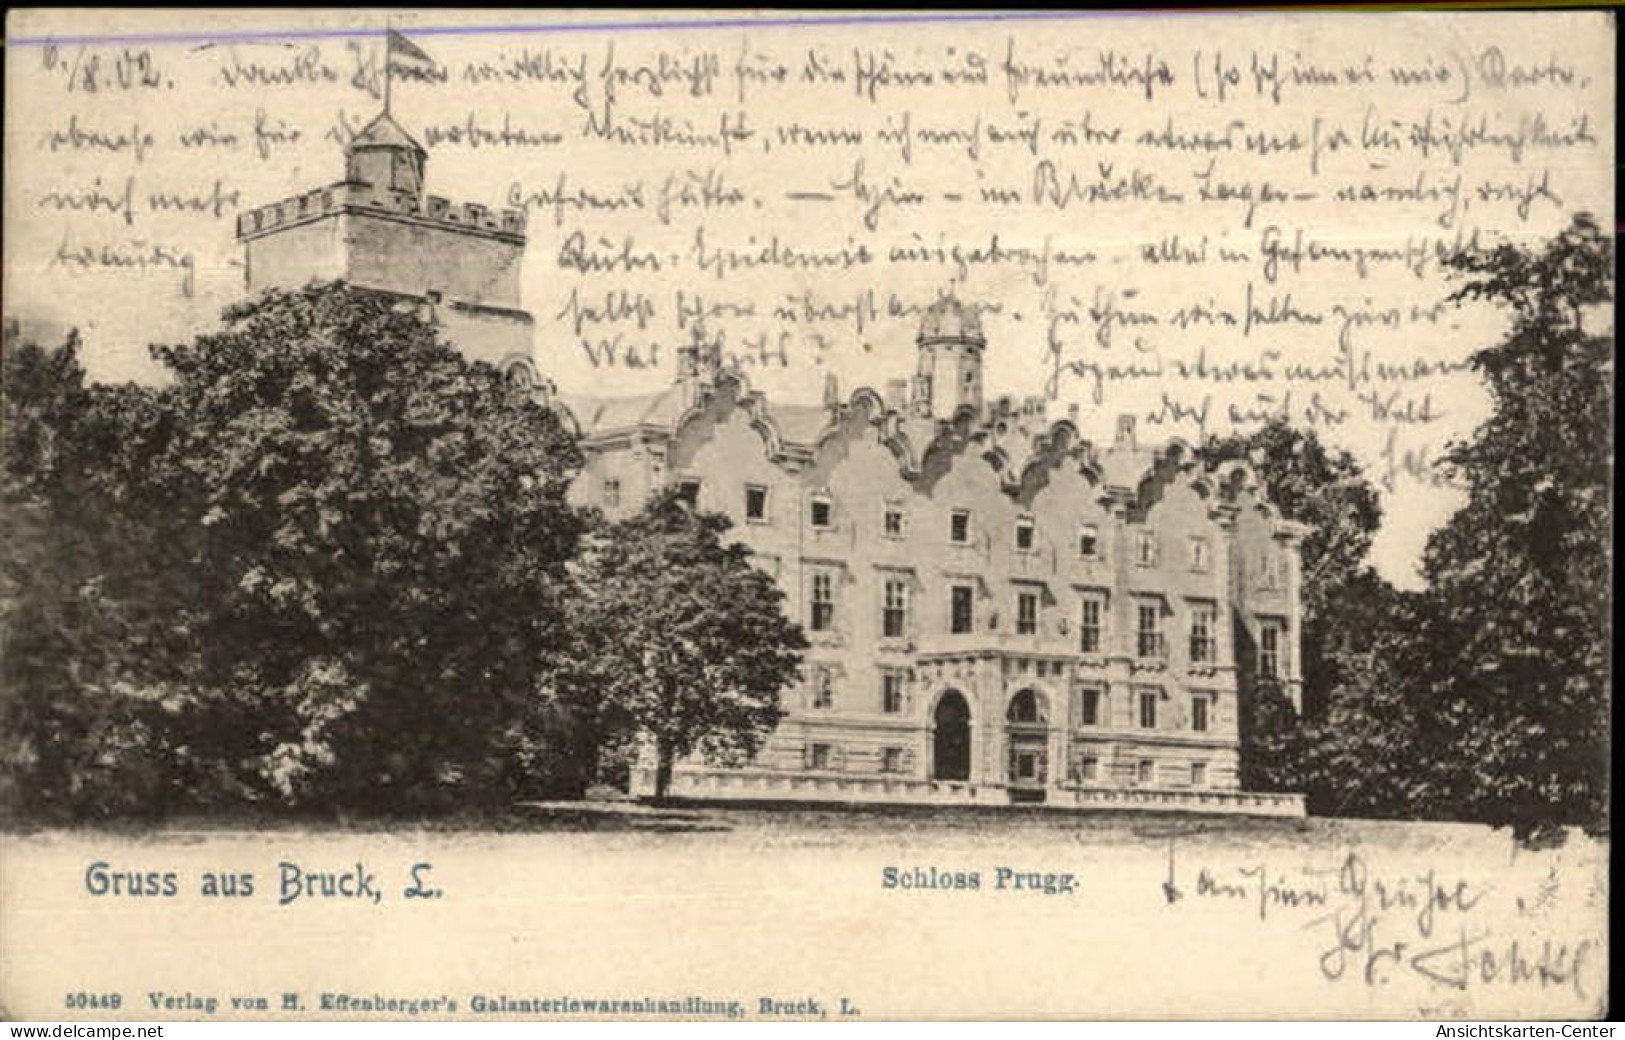 6./8.02. Danke Ihnen wirklich herzlichst für die schöne und freundliche (so schien es mir) Karte,
ebenso wie für die erbetene Auskunft, wenn ich mich auch über etwas mehr Ausführlichkeit
noch mehr gefreut hätte. — Hier - im Brucker Lager - nämlich, recht
traurig - Ruhr-Epidemie ausgebrochen - alles in Gefangenschaft
selbst schon überstanden. Zu thun wie selten zuvor.
Was thuts? Irgend etwas muß man
doch auf der Welt
Gruss aus Bruck, L.
Schloss Prugg.
Grüße
Ihr
50449 Verlag von H. Effenberger's Galanteriewarenhandlung, Bruck, L.
Ansichtskarten-Center
www.delcampe.net